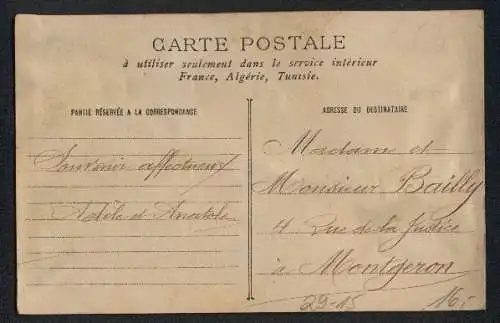 CARTE POSTALE
à utiliser seulement dans le service intérieur
France, Algérie, Tunisie.
PARTIE RÉSERVÉE A LA CORRESPONDANCE
Souvenir affectueux
Adèle et Anatole
ADRESSE DU DESTINATAIRE
Madame et
Monsieur Bailly
4 Rue de la Justice
à Montgeron
29-15
16,-